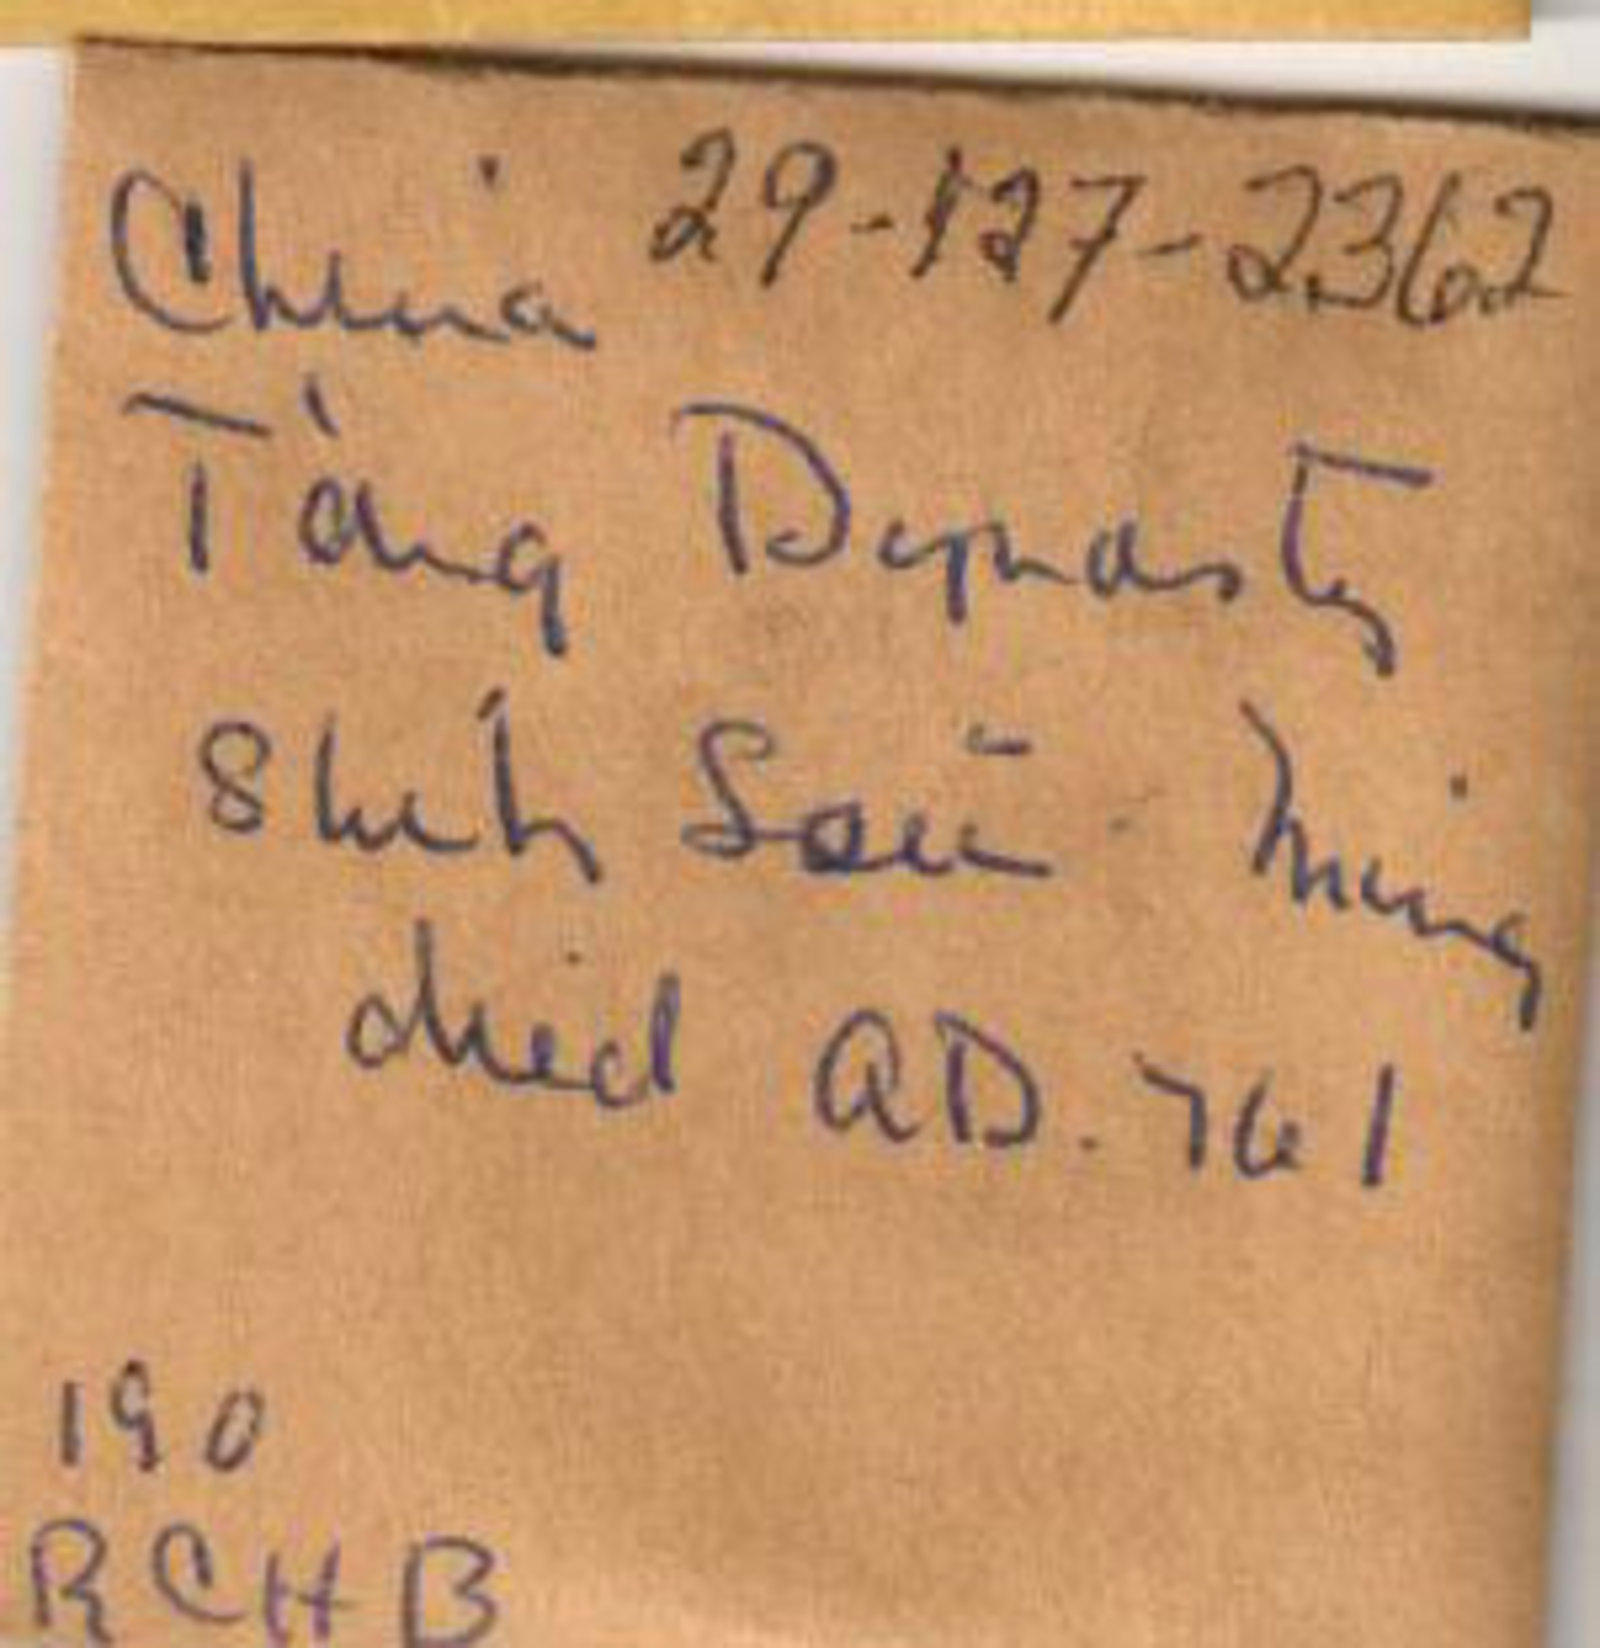 China 29-127-2362
T'ang Dynasty
Shih Ming
died AD. 761
190
RCHB